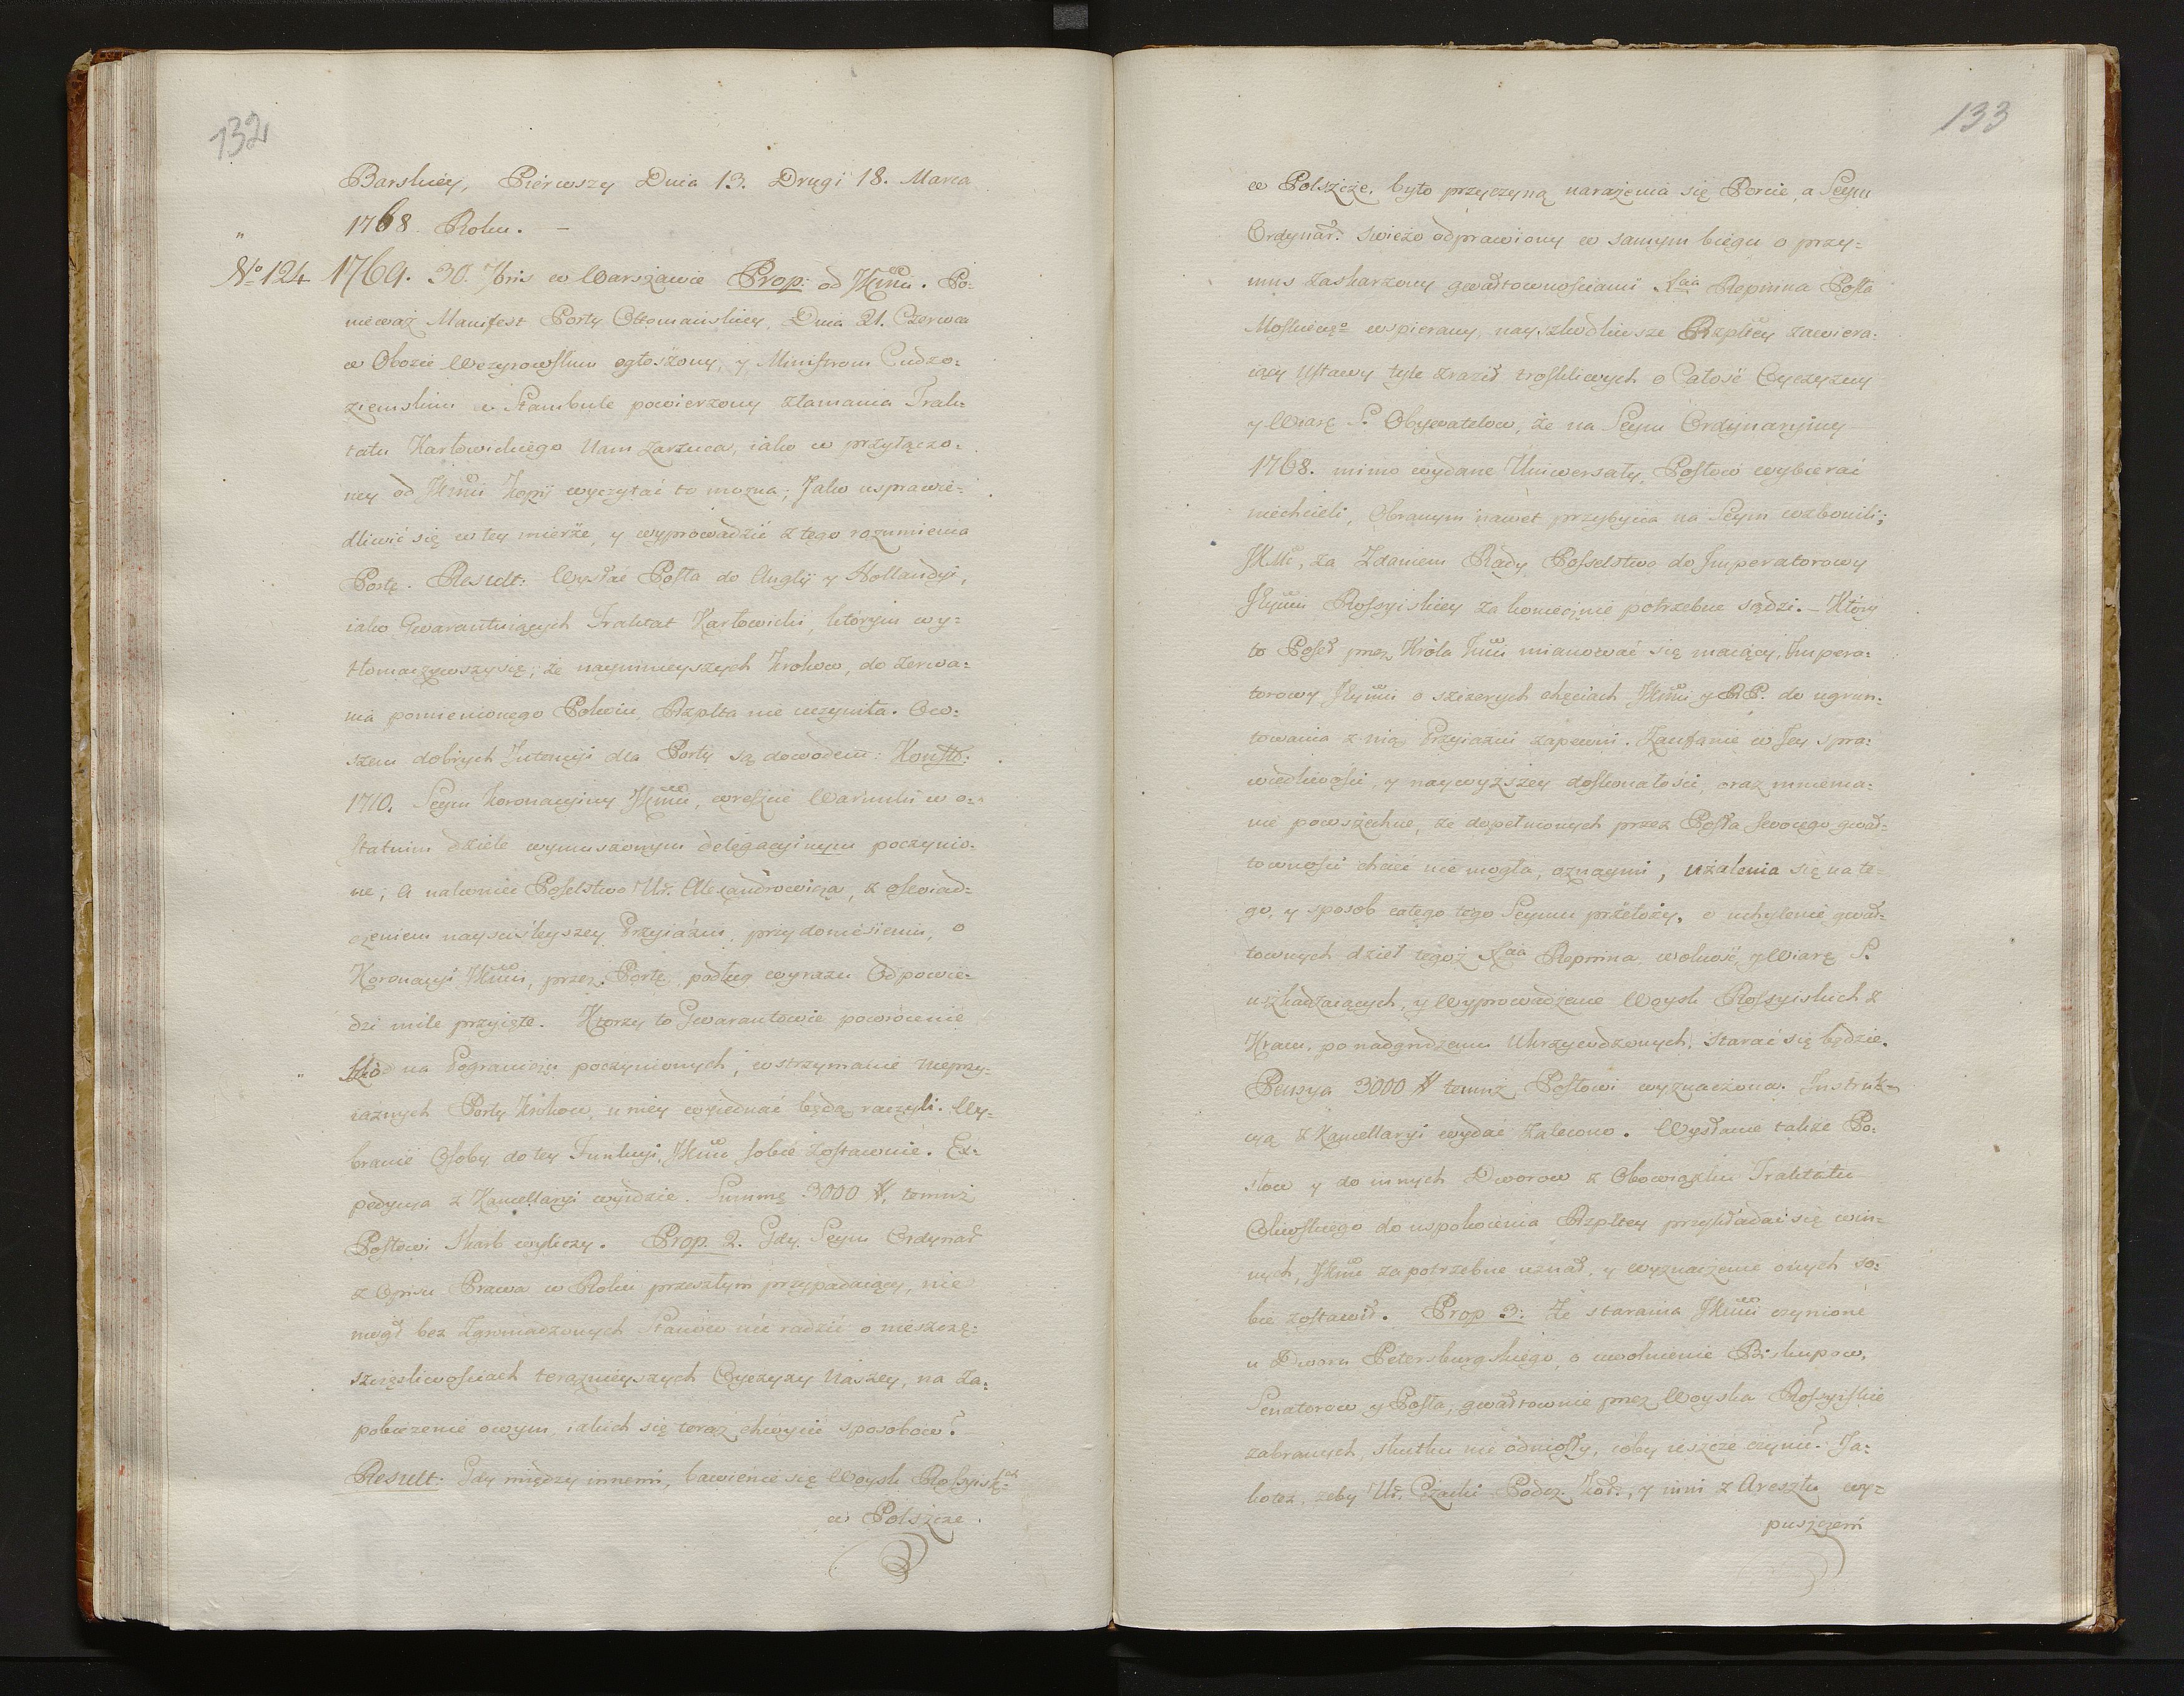 132
Barskiey, Piérwszy Dnia 13. Drugi 18. Marca
1768 Roku. —
No 124 1769. 30. 7bris w Warszawie Prop: od JKMci. Po=
nieważ Manifest Porty Ottomańskiey, Dnia 21. Czerwca
w Obozie Wezyrowskim ogłoszony, y Ministrom Cudzo=
ziemskim w Stambule powierzony złamania Trak=
tatu Karłowickiego Nam zarzuca, iako w przyłączo=
ney od JKMci Kopij wyczytać to można; Jako usprawie=
dliwić się w tey mierże, y wyprowadzić z tego rozumienia
Portę. Result: Wysłać Posła do Anglij y Hollandyi,
iako Gwarantuiących Traktat Karłowicki, którym wy=
tłomaczywszy się, że naymnieyszych Krokow, do zerwa=
nia pomienionego Pokoiu, Rzplta nie uczyniła. Ow=
szem dobrych Intencyi dla Porty są dowodem: Konstt:
1710. Seym Koronacyiny JKMci, wreszcie Warunki w o=
statnim dziele wymuszonym delegacyinym poczynio=
ne; A nakoniec Poselstwo Ur. Alexandrowicza, z oswiad=
czeniem nayscisleyszey Przyiazni, przy doniesieniu, o
Koronacyi JKMci, przez Portę podług wyrazu Odpowie=
dzi mile przyięte. Ktorzy to Gwarantowie powrócenie
szkód na Pograniczu poczynionych, wstrzymanie nieprzy=
iaznych Porty Krokow, u niey wyiednać będą raczyli. Wy=
branie Osoby do tey Funkcyi, JKMć sobie zostawuie. Ex=
pedycya z Kancellaryi wyidzie. Summę 3000 #, temuż
Posłowi Skarb wyliczy. Prop. 2. Gdy Seym Ordynar:
z Opisu Prawa w Roku przeszłym przypadaiący, nie
mogł bez Zgromadzonych Stanów nić radzić o nieszczę=
szczęsliwosciach teraznieyszych Oyczyzny Naszey, na za=
pobieżenie owym, iakich się teraz chwycić sposobow?
Result: Gdy między innemi, bawienie się Woysk Rossyisk:ch
w Polszcze.
133
w Polszcże, było przyczyną narażenia się Porcie, a Seym
Ordynar: swieżo odprawiony w samym biegu o przy=
mus zaskarżony gwałtownosciami Xcia Repnina Posła
Moskiewgo wspierany, nayszkodliwsze Rzpltey zawiera=
iący Ustawy tyle zraził troskliwych o Całość Oyczyzny
y Wiarę S. Obywatelow, że na Seym Ordynaryiny
1768. mimo wydane Uniwersały, Posłow wybierać
niechcieli, Obranym nawet przybycia na Seym wzbonili;
JKMć, za Zdaniem Rady, Posselstwo do Imperatorowy
JEymci Rossyiskiey za koniecznie potrzebne sądzi. — Który
to Poseł przez Króla Jmci mianować się maiący, Impera=
torowy JEymci o szczerych chęciach JKMci y RP. do ugrun=
towania z nią Przyiazni zapewni. Zaufanie w Jey spra=
wiedliwości, y naywyższey doskonałości, oraz mniema=
nie powszechne, że dopełnionych przez Posła swoiego gwał=
towności chcieć nie mogła, oznaymi, użalenia się na te=
go, y sposob całego tego Seymu przełoży, o uchylenie gwał=
townych dzieł tegoż Xcia Repnina, wolność, y Wiarę S.
uszkadzaiących, y Wyprowadzenie Woysk Rossyiskich z
Kraiu, po nadgrodzeniu Ukrzywdzonych, starać się będzie.
Pensya 3000 # temuż Posłowi wyznaczona. Instruk=
cyą z Kancellaryi wydać zalecono. Wysłanie także Po=
słow y do innych Dworow z Obowiązku Traktatu
Oliwskiego do uspokoienia Rzpltey przykładać się win=
nych, JKMć za potrzebne uznał, y wyznaczenie onych so=
bie zostawił. Prop 3: Ze starania JKMci czynione
u Dworu Petersburgskiego, o uwolnienie Biskupow,
Senatorow y Posła, gwałtownie przez Woyska Rossyiskie
zabranych, skutku nie odniosły, coby ieszcze czynić? Ja=
kotez, zeby Ur. Czacki Podcz. Kor., y inni z Aresztu wy=
puszczeni